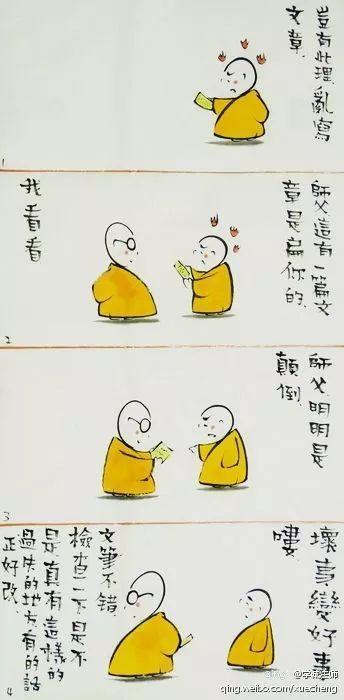 豈有此理,亂寫
文章,
1
師父這有一篇文
章是扁你的,
我看看
2
師父,明明是
顛倒,
3
壞事變好事
嘍,
文筆不錯,
檢查一下是不
是真有這樣的
過失的地方有的話
正好改,
4
qing.weibo.com/xuechang